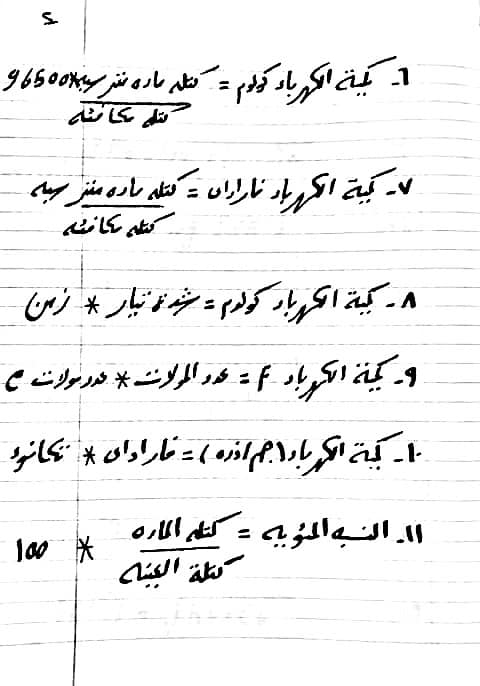 2
٦- كمية الكهرباء كولوم = كتله ماده مترسبه * 96500
كتله مكافئه
٧- كمية الكهرباء فاراداى = كتله ماده مترسبه
كتله مكافئه
٨- كمية الكهرباء كولوم = شدة تيار * زمن
٩- كمية الكهرباء F = عدد المولات * عدد مولات e
١٠- كمية الكهرباء (جم/ذره) = فاراداى * تكافؤ
١١- النسبه المئويه = كتله الماده * 100
كتلة العينه